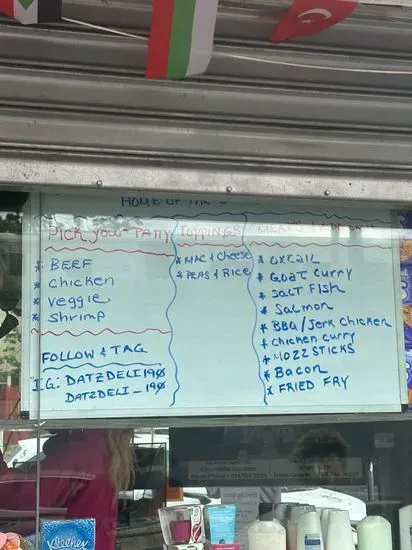 HOME OF THE
PICK YOUR PATTY
* BEEF
* Chicken
* Veggie
* Shrimp
FOLLOW & TAG
IG: DATZDELI190
DATZDELI_190
TOPPINGS
* MAC & Cheese
* PEAS & RICE
MEATS
* OXTAIL
* GOAT CURRY
* SALT FISH
* SALMON
* BBQ/JERK CHICKEN
* CHICKEN CURRY
* MOZZ STICKS
* Bacon
* FRIED FRY
Kleenex